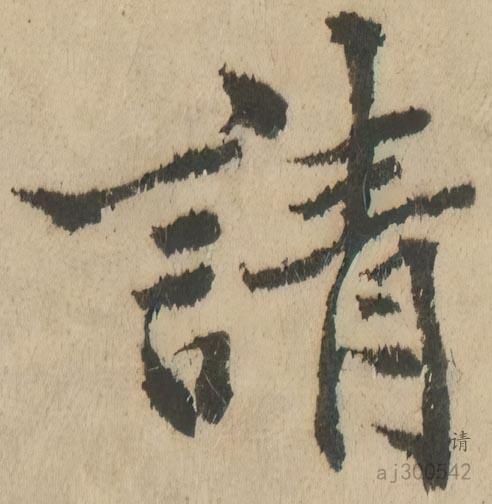 請
请
aj300542